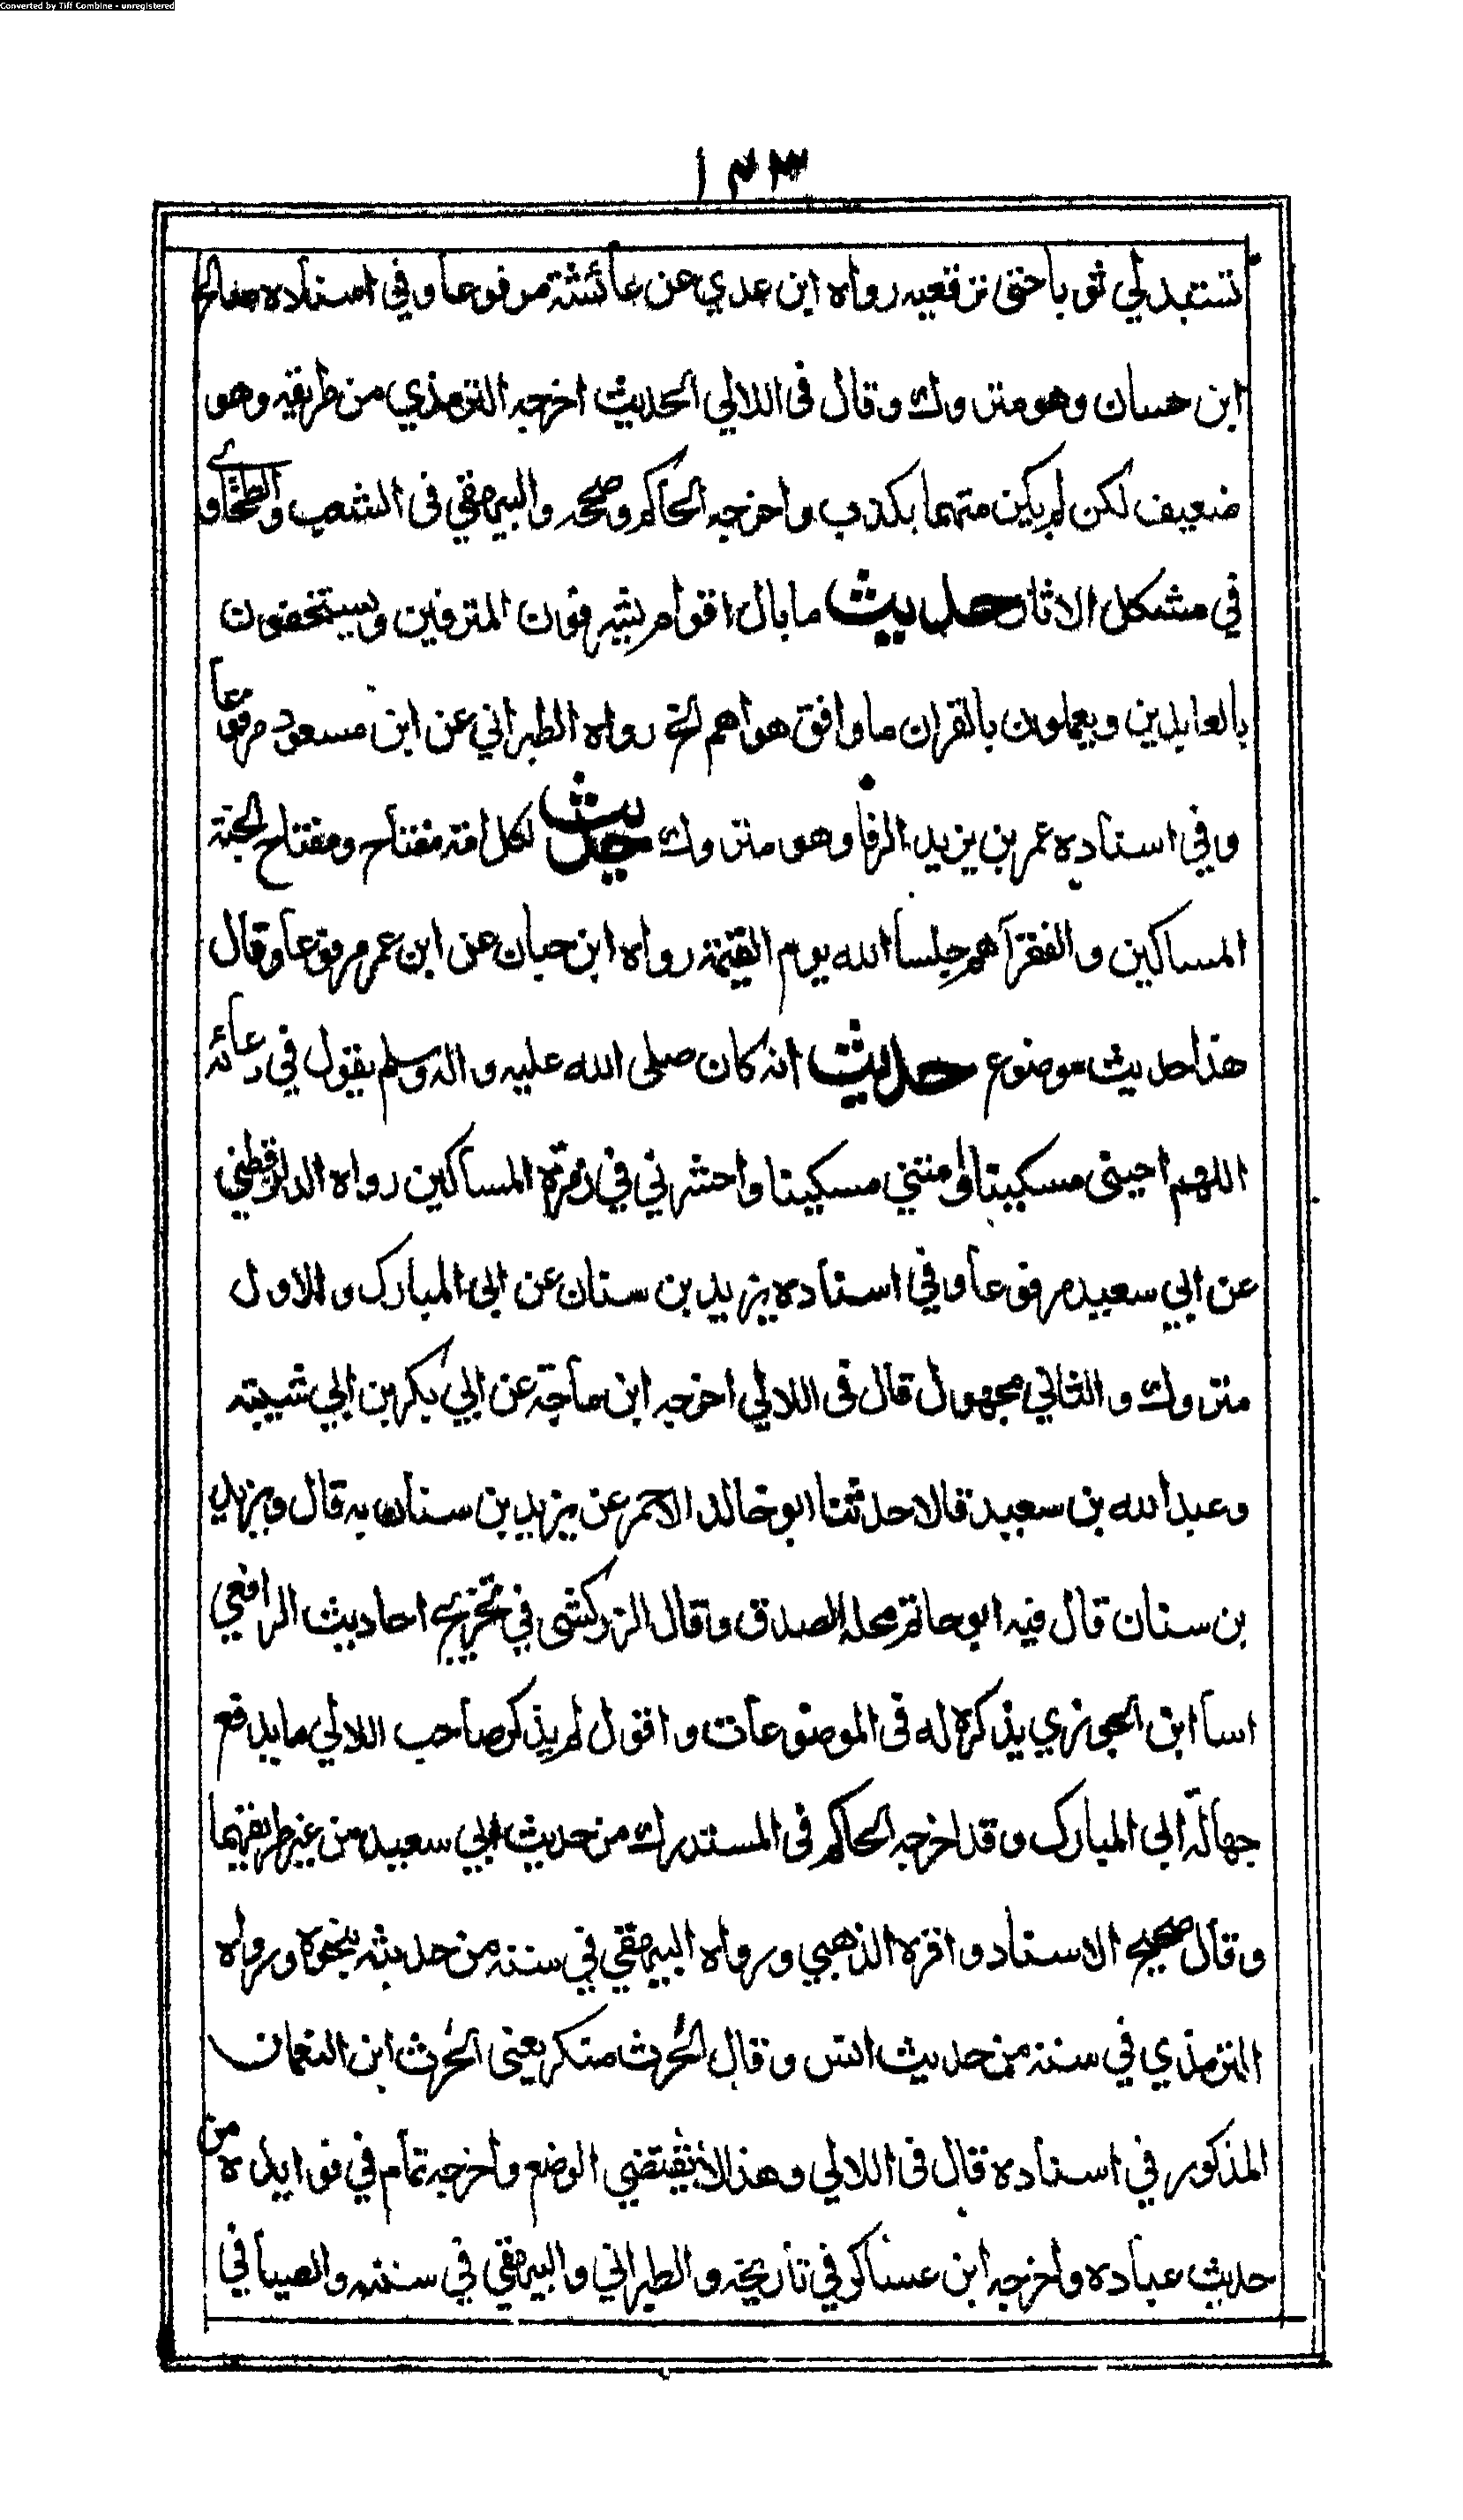 Converted by Tiff Combine - unregistered
١٤٣
تستبدلي ثوبا حتى ترقعيه رواه ابن عدي عن عائشة مرفوعا وفي اسناده صالح
ابن حسان وهو متروك وقال في اللالي الحديث اخرجه الترمذي من طريقه وهو
ضعيف لكن لم يكن متهما بكذب واخرجه الحاكم وصححه والبيهقي في الشعب والطحاوي
في مشكل الاثار حديث ما بال اقوام يشرفون المترفين ويستخفون
بالعابدين ويعملون بالقران ما وافق هواهم الخ رواه الطبراني عن ابن مسعود مرفوعا
وفي اسناده عمر بن يزيد الرفا وهو متروك حديث لكل امة مفتاح ومفتاح الجنة
المساكين والفقرآ هم جلسا الله يوم القيمة رواه ابن حبان عن ابن عمر مرفوعا وقال
هذا حديث موضوع حديث انه كان صلى الله عليه واله وسلم يقول في دعائه
اللهم احيني مسكينا وامتني مسكينا واحشرني في زمرة المساكين رواه الدارقطني
عن ابي سعيد مرفوعا وفي اسناده يزيد بن سنان عن ابي المبارك والاول
متروك والثاني مجهول قال في اللالي اخرجه ابن ماجة عن ابي بكر بن ابي شيبة
وعبد الله بن سعيد قالا حدثنا ابو خالد الاحمر عن يزيد بن سنان به قال ويزيد
بن سنان قال فيه ابو حاتم محله الصدق وقال الزركشي في تخريج احاديث الرافعي
اسا ابن الجوزي بذكره له في الموضوعات واقول لم يذكر صاحب اللالي ما يدفع
جهالة ابي المبارك وقد اخرجه الحاكم في المستدرك من حديث ابي سعيد من غير طريقهما
وقال صحيح الاسناد واقره الذهبي ورواه البيهقي في سننه من حديثه بنحوه ورواه
الترمذي في سننه من حديث انس وقال الحرث منكر يعني الحرث ابن النعمان
المذكور في اسناده قال في اللالي وهذا لا يقتضي الوضع واخرجه تمام في فوايده من
حديث عباده واخرجه ابن عساكر في تاريخه والطبراني والبيهقي في سننه والضيا في